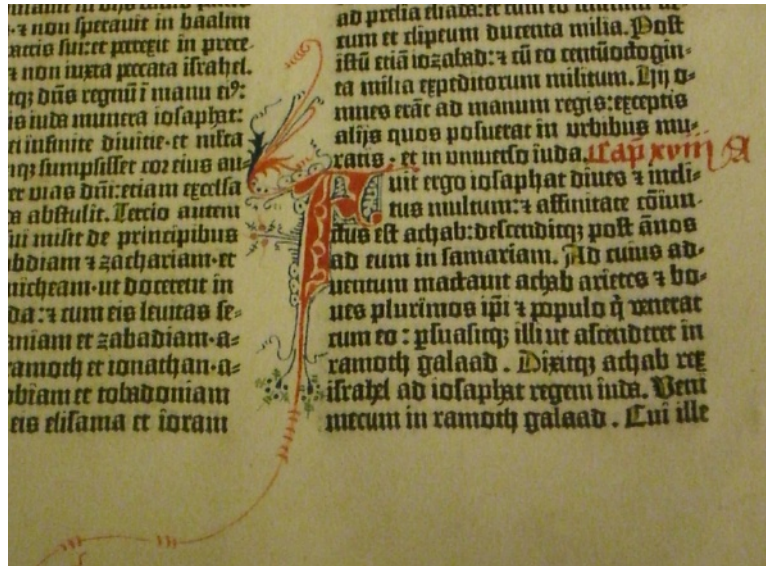 ·⁊ non sperauit in baalim
accis sui:et perrexit in prece-
⁊ non iuxta peccata israhel.
itqꝫ dn̄s regnū ī manu eiꝰ:
is iuda munera iosaphat:
et infinite diuicie·et m̄lta
nqꝫ sumpsisset cor eius au-
er vias dn̄i:etiam excelsa
os abstulit. Tercio autem
ui misit de principibus
bdiam ⁊ zachariam·et
micheam·ut docerent in
da:⁊ cum eis leuitas se-
aniam et zabadiam·a-
amoth et ionathan·a-
obiam et tobadoniam
eis elisama et ioram
ad prelia eliada:et cum eo
cum et clipeum ducenta milia. Post
istū etiā iozabad:⁊ cū eo centūodogin-
ta milia expeditorum militum. Hij o-
mnes erāt ad manum regis:exceptis
alijs quos posuerat in urbibus mu-
ratis·et in vniuerso iuda. Cap̄ xviij A
Fuit ergo iosaphat diues ⁊ incli-
tus multum:⁊ affinitate cōiun-
ctus est achab:descenditqꝫ post ānos
ad eum in samariam. Ad cuius ad-
uentum mactauit achab arietes ⁊ bo-
ues plurimos ip̄i ⁊ populo q̄ venerat
cum eo: ꝑsuasitqꝫ illi ut ascenderet in
ramoth galaad. Dixitqꝫ achab rex
israhel ad iosaphat regem iuda. Veni
mecum in ramoth galaad. Cui ille